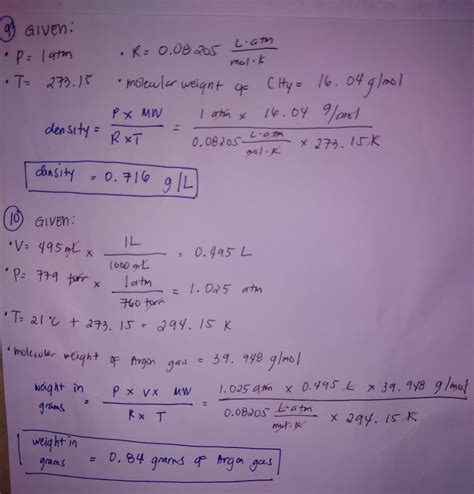 9) GIVEN:
• P = 1 atm • R = 0.08205 L·atm / mol·K
• T = 273.15 • molecular weight of CH4 = 16.04 g/mol
density = P x MW / R x T = 1 atm x 16.04 g/mol / 0.08205 L·atm / mol·K x 273.15 K
density = 0.716 g/L
10) GIVEN:
• V = 495 mL x 1L / 1000 mL = 0.495 L
• P = 779 torr x 1 atm / 760 torr = 1.025 atm
• T = 21°C + 273.15 = 294.15 K
• molecular weight of Argon gas = 39.948 g/mol
weight in grams = P x V x MW / R x T = 1.025 atm x 0.495 L x 39.948 g/mol / 0.08205 L·atm / mol·K x 294.15 K
weight in grams = 0.84 grams of Argon gas